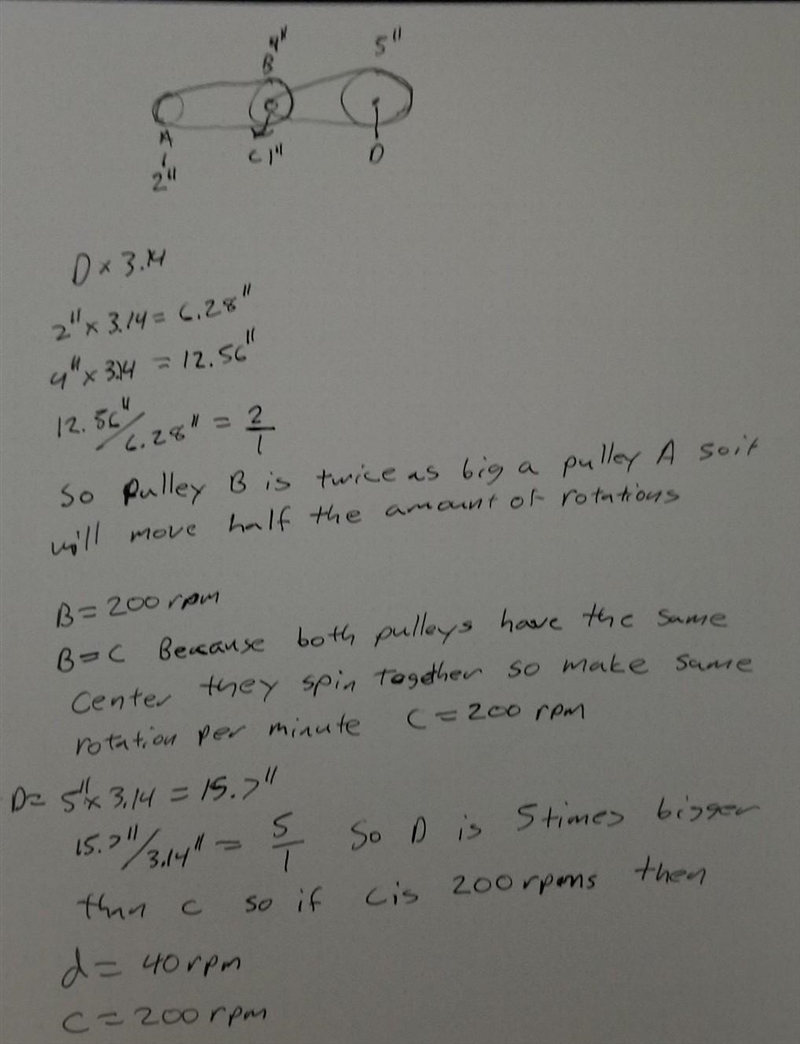 4" 5"
B
A
C 1" D
2"
D x 3.14
2" x 3.14 = 6.28"
4" x 3.14 = 12.56"
12.56"/6.28" = 2/1
So Pulley B is twice as big a pulley A so it
will move half the amount of rotations
B = 200 rpm
B = C Because both pulleys have the same
center they spin together so make same
rotation per minute C = 200 rpm
D = 5" x 3.14 = 15.7"
15.7"/3.14" = 5/1 So D is 5 times bigger
than c so if c is 200 rpms then
d = 40 rpm
C = 200 rpm